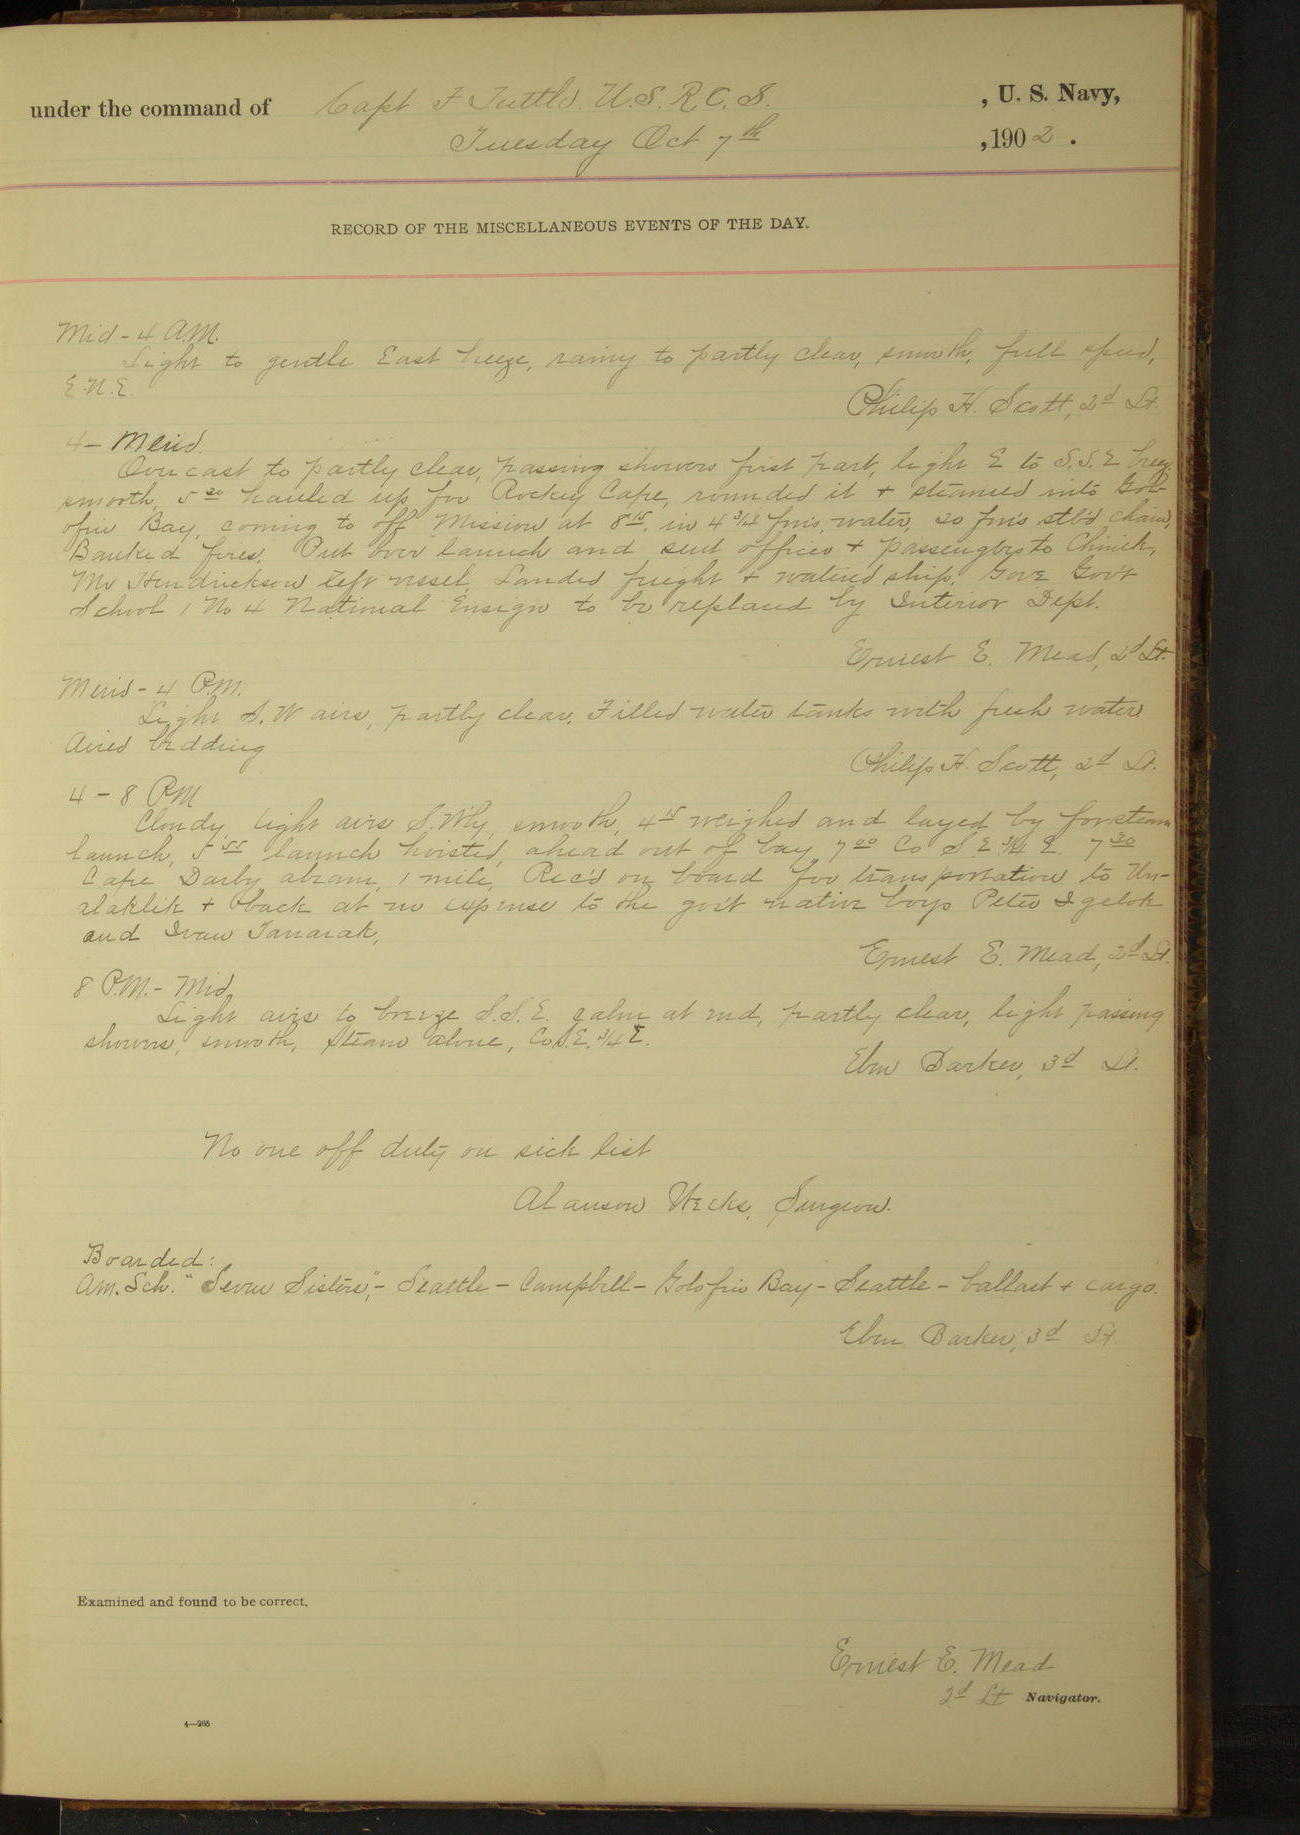 under the command of Capt F Tuttle. U.S.R.C.S. , U. S. Navy,
Tuesday Oct 7th , 1902 .
RECORD OF THE MISCELLANEOUS EVENTS OF THE DAY.
Mid - 4 A.M.
Light to gentle East breeze, rainy to partly clear, smooth, full speed,
E.N.E.
Philip H. Scott, 2d Lt.
4 - Merid.
Overcast to partly clear, passing showers first part, light E to S.S.E breeze
smooth, 5 30 hauled up for Rocky Cape, rounded it + steamed into Gol-
ofnin Bay, coming to off Mission at 8 15, in 4 3/4 fms. water, 20 fms stb'd chain,
Banked fires, Put over launch and sent officer + passengers to Chinik,
Mr Hendrickson left vessel, Landed freight + watered ship. Gave Gov't
School 1 No 4 National Ensign to be replaced by Interior Dept.
Ernest E. Mead, 2d Lt.
Merid - 4 P.M.
Light S.W airs, partly clear. Filled water tanks with fresh water
Aired bedding
Philip H. Scott, 2d Lt.
4 - 8 PM
Cloudy, light airs S.W'ly, smooth, 4 15 weighed and layed by for steam
launch, 5 55 launch hoisted, ahead out of bay, 7 00 Co S.E. 3/4 E. 7 30
Cape Darby abeam, 1 mile, Rec'd on board for transportation to Un-
alaklik + back at no expense to the gov't native boys Peter Igelok
and Ivan Tanarak,
Ernest E. Mead, 2d Lt.
8 P.M. - Mid
Light airs to breeze S.S.E. calm at end, partly clear, light passing
showers, smooth, steam alone, Co S.E. 3/4 E.
Eben Barker, 3d Lt.
No one off duty on sick list
Alanson Weeks, Surgeon.
Boarded:
Am. Sch. "Seven Sisters", - Seattle - Campbell - Golofnin Bay - Seattle - ballast + cargo.
Eben Barker, 3d Lt.
Examined and found to be correct.
Ernest E. Mead
2d Lt Navigator.
4—265